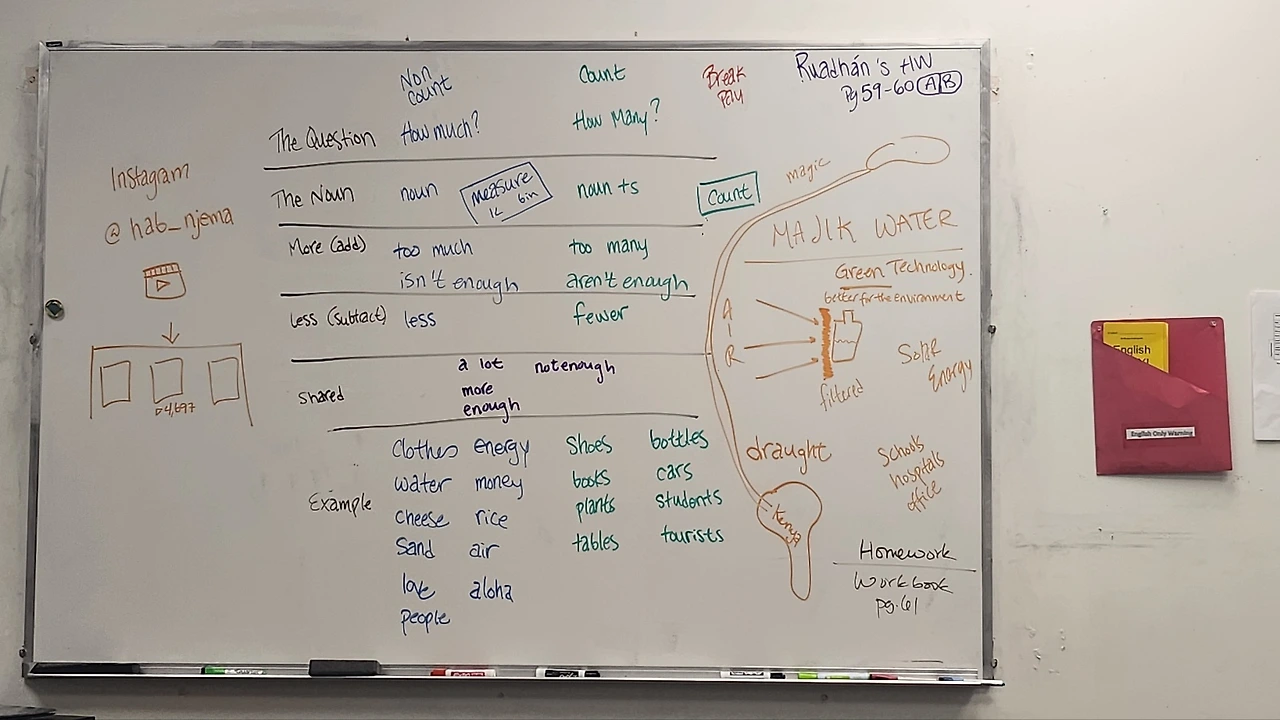 Instagram
@ hab_njema
▷4,697
Non Count
Count
Break
Pau
The Question
How much?
How Many?
The Noun
noun
measure
12 6in
noun +s
Count
More (add)
too much
too many
isn't enough
aren't enough
Less (subtract)
less
fewer
Shared
a lot
not enough
more
enough
Example
Clothes energy
shoes bottles
water money
books cars
cheese rice
plants students
Sand air
tables tourists
love aloha
people
Ruadhán's HW
Pg 59-60 A B
magic
MAJIK WATER
Green Technology.
better for the environment
AIR
filtered
Solar
Energy
draught
Kenya
Schools
hospitals
office
Homework
Workbook
pg. 61
English
English Only Warning